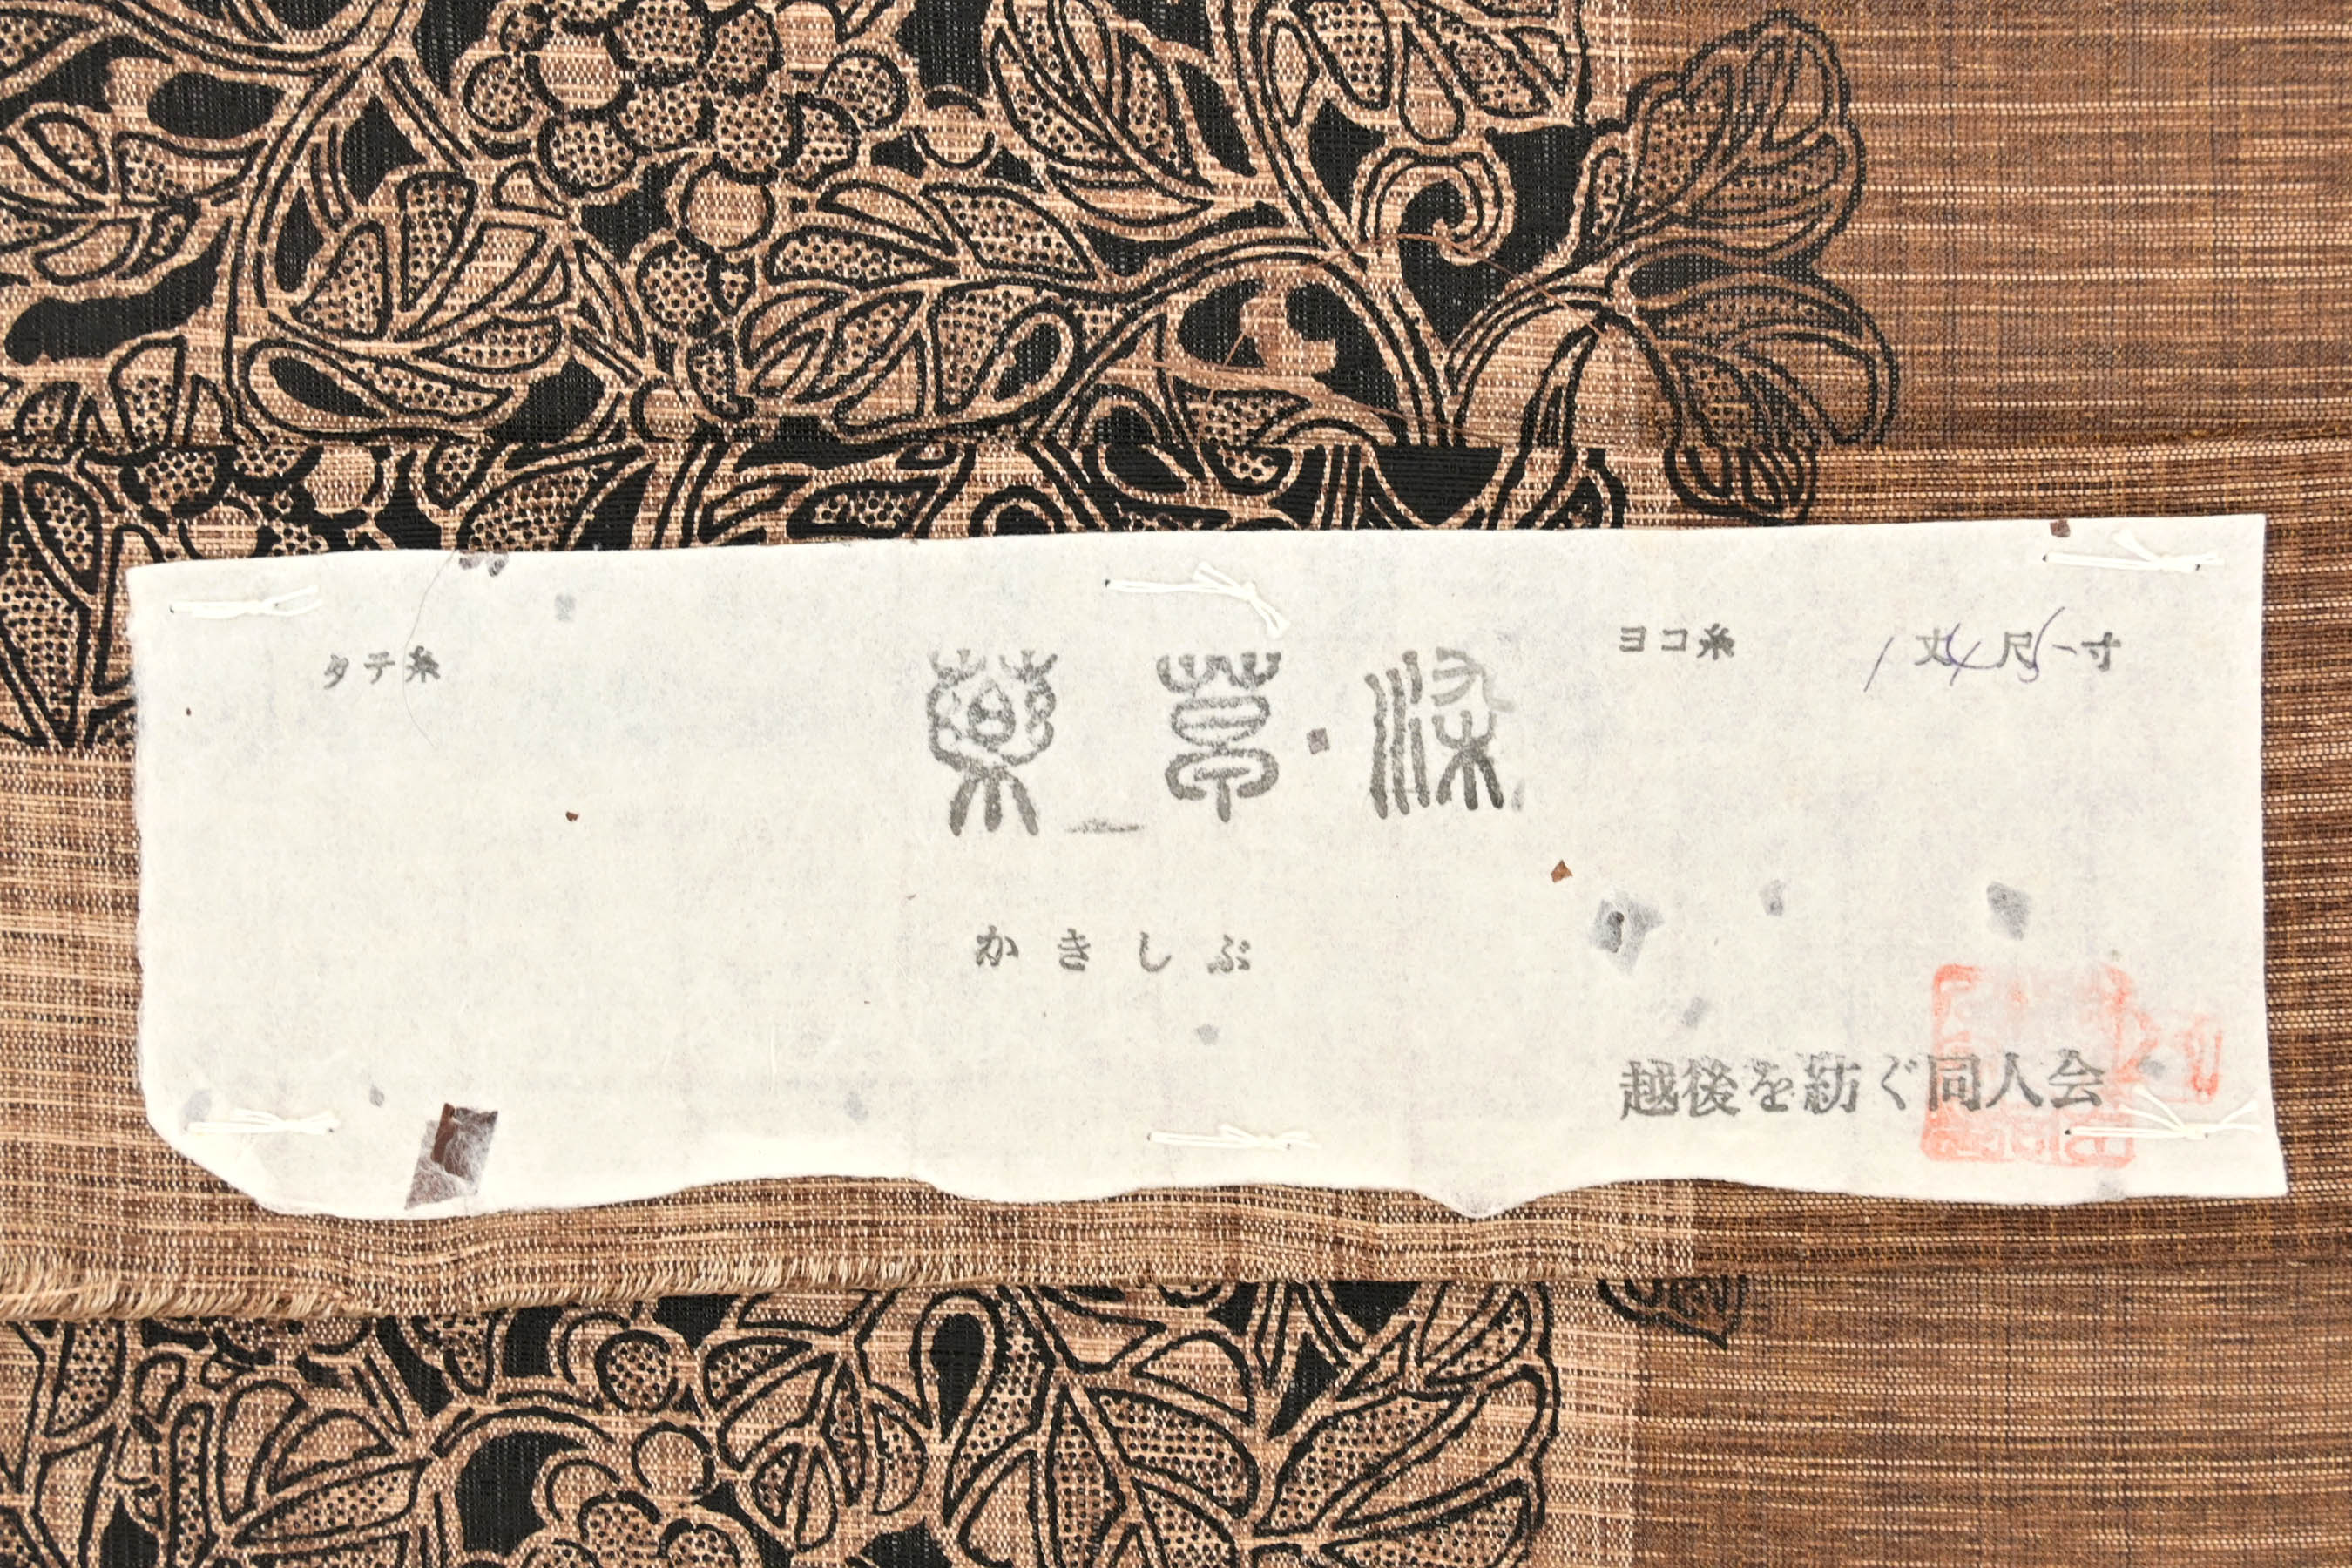 タテ糸
薬草・染
ヨコ糸
1丈4尺5寸
かきしぶ
越後を紡ぐ同人会